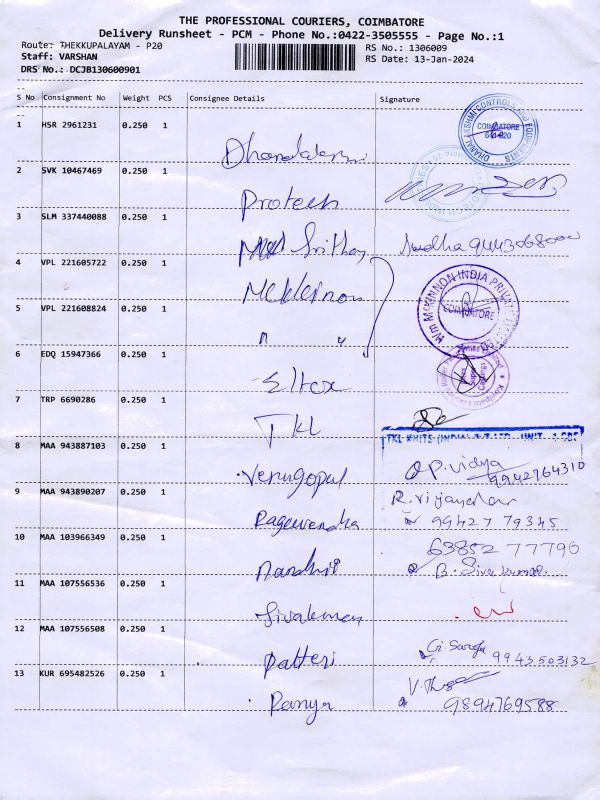 THE PROFESSIONAL COURIERS, COIMBATORE
Delivery Runsheet - PCM - Phone No.:0422-3505555 - Page No.:1
Route: THEKKUPALAYAM - P20
RS No.: 1306009
Staff: VARSHAN
RS Date: 13-Jan-2024
DRS No.: DCJB130600901
S No Consignment No Weight PCS Consignee Details Signature
1 HSR 2961231 0.250 1
DHANALAKSHMI CONTROLS AND EQUIPMENTS
COIMBATORE
641 020
2 SVK 10467469 0.250 1 Protech
3 SLM 337440088 0.250 1 Srithay Sudha
4 VPL 221605722 0.250 1 Mckinnon
W/m MCKINNON INDIA PRIVATE
COIMBATORE
5 VPL 221608824 0.250 1 " "
6 EDQ 15947366 0.250 1 Eltex
7 TRP 6690286 0.250 1 TKL
TKL KNITS (INDIA) PVT LTD - UNIT
8 MAA 943887103 0.250 1 Venugopal P. Vidya
9942764310
9 MAA 943890207 0.250 1 Ragavendha R. Vijayakar
99427 79345
10 MAA 103966349 0.250 1 Nandhii 63852 77796
B. Siva Kumar.
11 MAA 107556536 0.250 1 Sivakumar
12 MAA 107556508 0.250 1 Patteri G. Saroja
9943503132
13 KUR 695482526 0.250 1 Ramya
9894769588